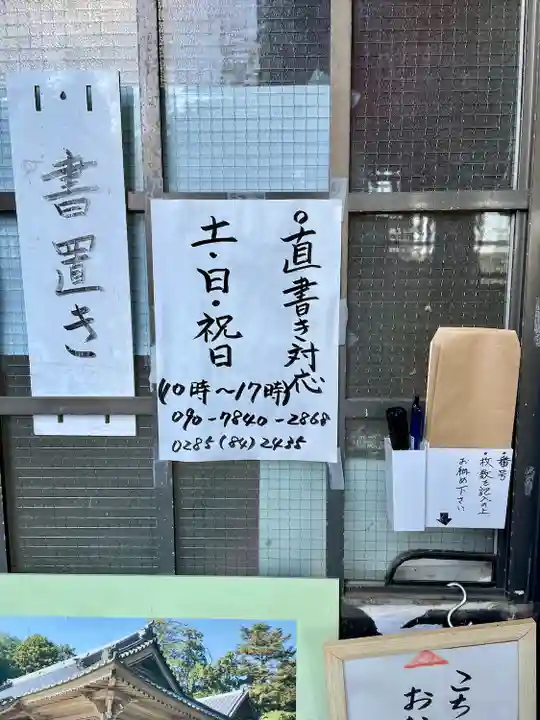 書置き
○直書き対応
土・日・祝日
(10時〜17時)
090-7840-2868
0285(84)2435
・番号
・枚数を記入の上
お納め下さい
こち
お